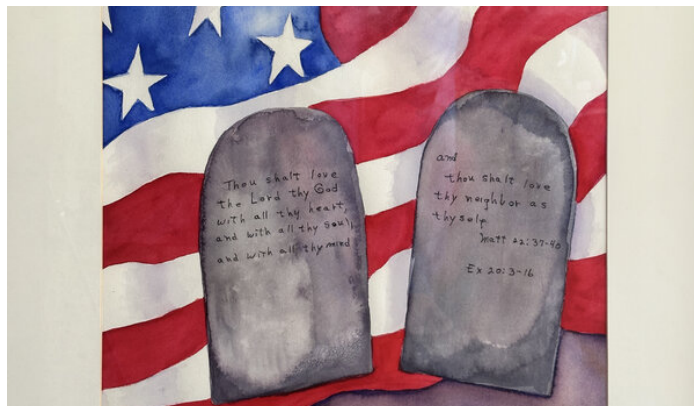 Thou shalt love
the Lord thy God
with all thy heart,
and with all thy soul,
and with all thy mind
and
thou shalt love
thy neighbor as
thyself
Matt 22:37-40
Ex 20:3-16